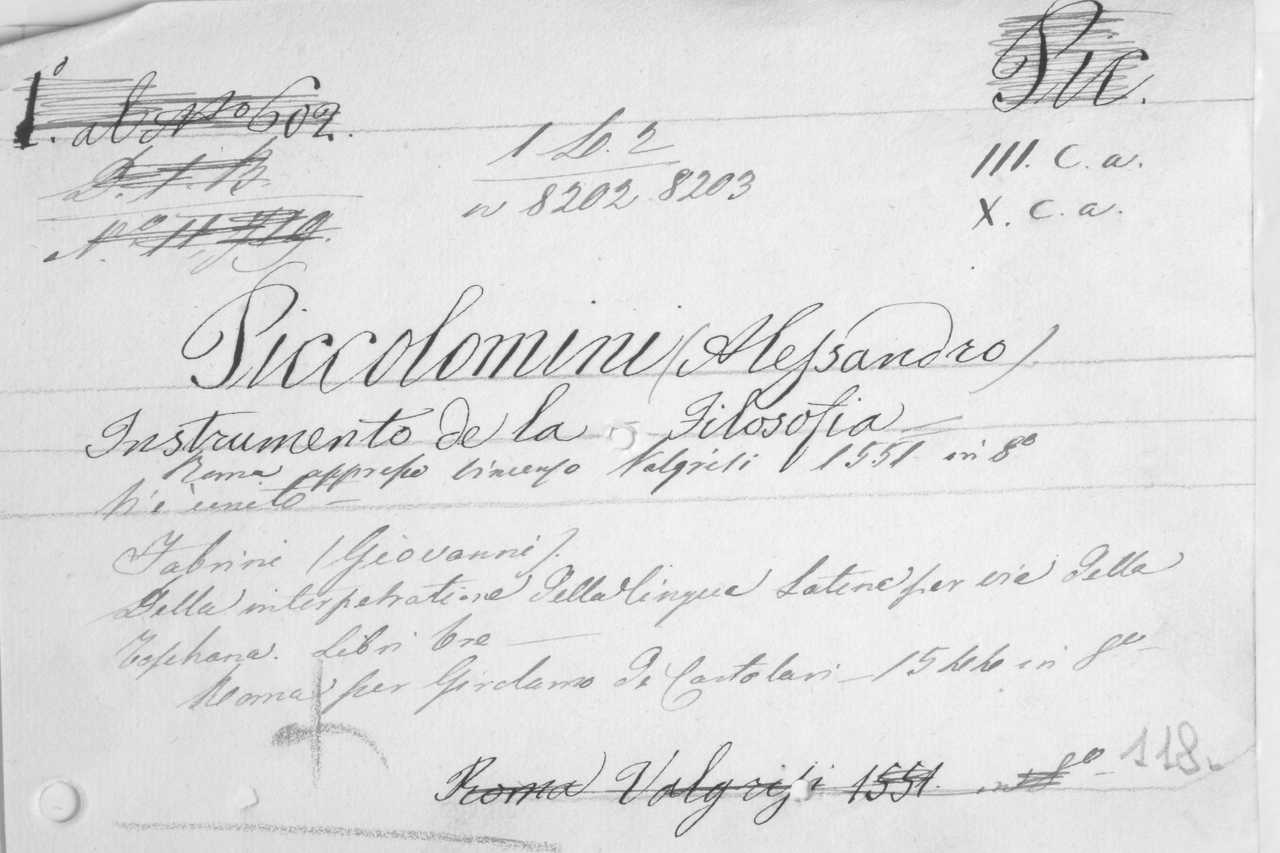 Pic.
1. ab No 602.
D. 1. B.
No 11,719.
1 L. 2
n 8202 8203
III. C. a.
X. C. a.
Piccolomini (Alessandro)
Instrumento de la Filosofia —
Roma appresso Vincenzo Valgrisi 1551 in 8o
V'è unito —
Fabrini (Giovanni).
Della interpetratione della lingua Latina per via della
Toschana. Libri tre —
Roma per Girolamo de Cartolari — 1544 in 8o —
Roma Valgrisi 1551. in 8o — 118.